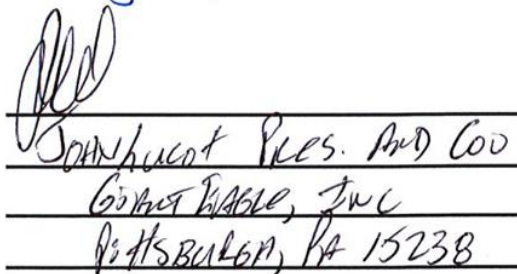 John Lucot Pres. And COO
Giant Eagle, Inc
Pittsburgh, PA 15238